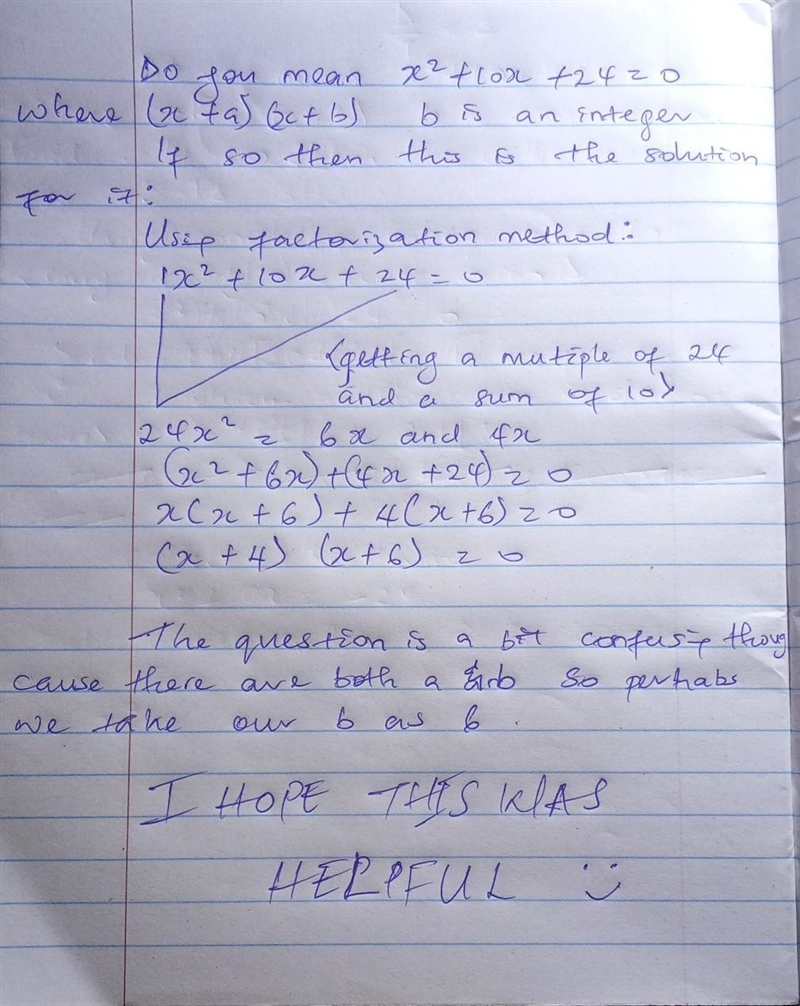 Do you mean x² + 10x + 24 = 0
where (x + a) (x + b) b is an integer
If so then this is the solution
for it:
Using factorization method:
1x² + 10x + 24 = 0
(getting a mutiple of 24
and a sum of 10)
24x² = 6x and 4x
(x² + 6x) + (4x + 24) = 0
x(x + 6) + 4(x + 6) = 0
(x + 4) (x + 6) = 0
The question is a bit confusing thoug
cause there are both a & b so perhabs
we take our b as 6.
I HOPE THIS WAS
HELPFUL :)